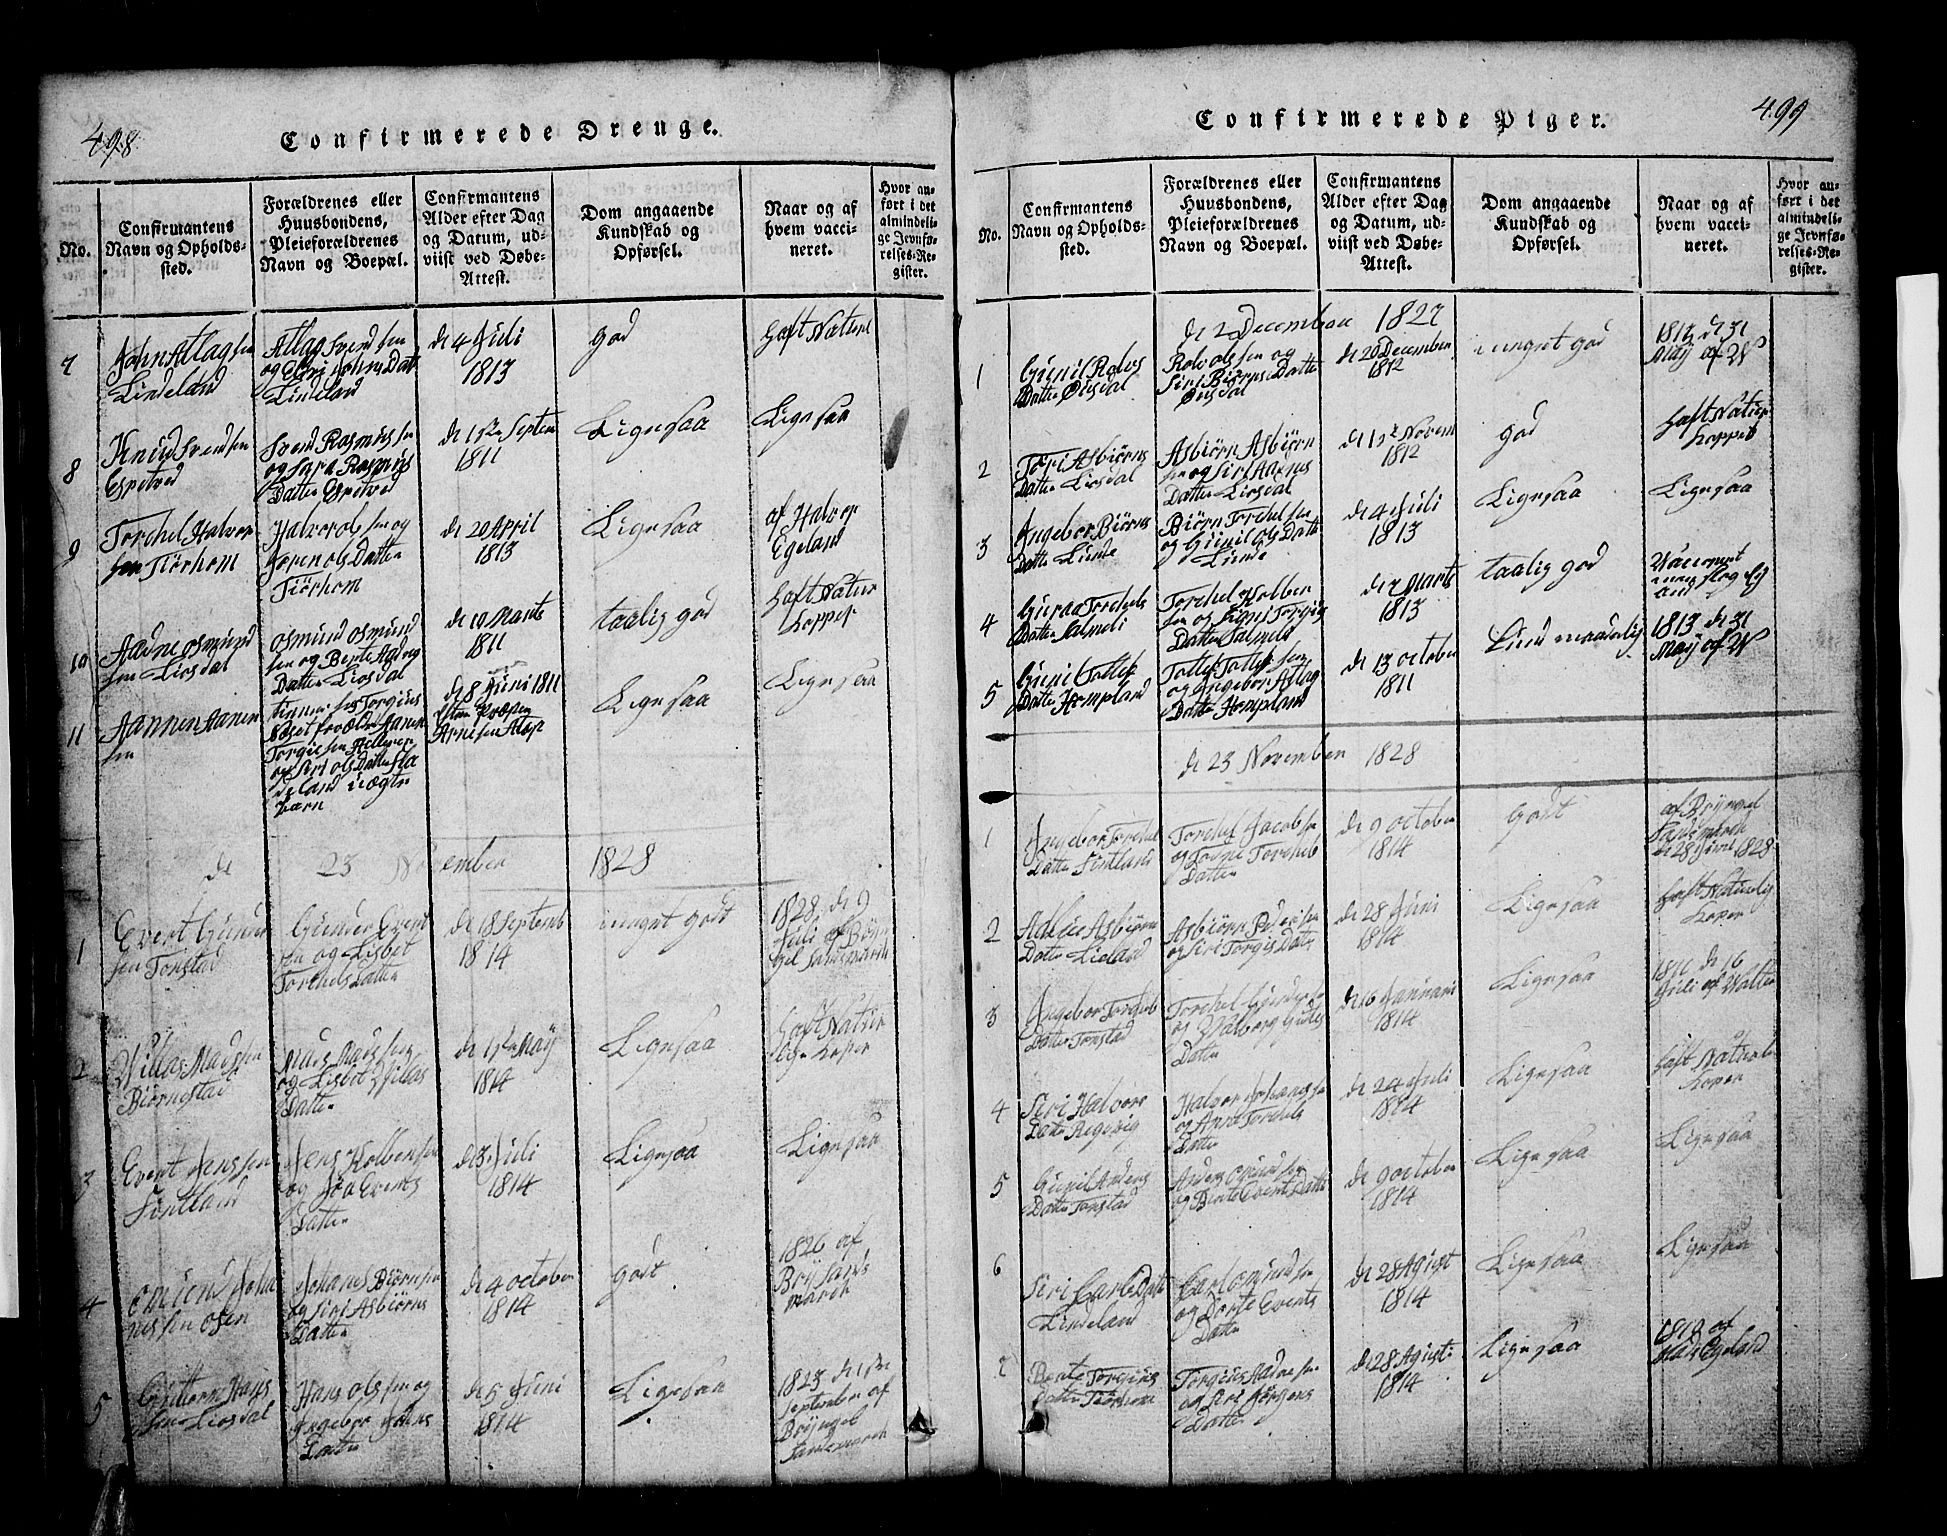 498.
Confirmerede Drenge.
No.
Confirmantens
Navn og Opholds-
sted.
Forældrenes eller
Huusbondens,
Pleieforældrenes
Navn og Boepæl.
Confirmantens
Alder efter Dag
og Datum, ud-
viist ved Døbe-
Attest.
Dom angaaende
Kundskab og
Opførsel.
Naar og af
hvem vacci-
neret.
Hvor an-
ført i det
almindeli-
ge Jevnfø-
relses-Re-
gister.
7
John Atlagsen
Lindeland
Atlag Svendsen
og Siri Johns Datt
Lindeland
de 4 Juli
1813
god
haft Naturl
8
Knud Svendsen
Espetved
Svend Rasmussen
og Sara Rasmus
Datter Espetved
de 15de Septem
1811
Ligesaa
Ligesaa
9
Torchel Halvor
sen Tiørhom
Halvor olsen og
Joren ols Datter
Tiørhom
de 20 April
1813
Ligesaa
af Halvor
Egeland
10
Aadne osmund
sen Liosdal
osmund osmund
sen og Berte Aadne
Datter Liosdal
de 19 Marts
1811
taalig god
haft Natur
kopper
11
Aannen Aanen
sen
Torgiesen Helleren
og Siri ols Datter
uægte
barn
de 8 Juni 1811
Ligesaa
Ligesaa
de 23 November 1828
1
Evert Gunder
sen Tonstad
Gunder Evert
sen og Lisbet
Torchels Datter
de 18 Septemb
1814
meget godt
1828 de 9
Juli af Bryn
gel Sandsmark
2
Villas Madssen
Biørnestad
Mads
og Lisbet Villas
Datter
de 17de May
1814
Ligesaa
haft Natur
lige koper
3
Evert Jenssen
Sintland
Jens Holbensen
og Joa Everts
Datter
de 3 Juli
1814
Ligesaa
Ligesaa
4
omund Joha
nessen osen
Johans Biørnsen
og Siri Asbiørns
Datter
de 4 october
1814
godt
1826 af
Bry Sands
march
5
Guttorm Hans
sen Liosdal
Hans olsen og
Ingebor Johns
Datter
de 5 Juni
1814
Ligesaa
1823 de 1
September af
Bryngel
Sandsmarch
499
Confirmerede Piger.
No.
Confirmantens
Navn og Opholds-
sted.
Forældrenes eller
Huusbondens,
Pleieforældrenes
Navn og Boepæl.
Confirmantens
Alder efter Dag
og Datum, ud-
viist ved Døbe-
Attest.
Dom angaaende
Kundskab og
Opførsel.
Naar og af
hvem vacci-
neret.
Hvor an-
ført i det
almindeli-
ge Jevnfø-
relses-Re-
gister.
de 2 December 1827
1
Gunil Rolvs
Datter Øusdal
Rolv olssen og
Siri Biørns Datter
Øusdal
de 20 December
1812
meget god
1812 de 31
May af W
2
Tori Asbiørns
Datter Liosdal
Asbiørn Asbiørn
sen og Siri Aanens
Datter Liosdal
de 15de Novem
1812
god
haft Natur
koppes
3
Angebor Biørns
Datter Lunde
Biørn Torchelsen
og Gunil ols Datter
Lunde
de 4 Juli
1813
Ligesaa
Ligesaa
4
Guroa Torchels
Datter Salmeli
Torchel Holben
sen og Signi Torgius
Datter Salmeli
de 7 Marts
1813
taalig god
5
Gunil Tollef
Datter Hompland
Tollef Tollefsen
og Angebor Atlag
Datter Hompland
de 13 october
1811
1813 de 31
May af W
de 23 November 1828
1
Angebor Torchel
Datter Sintland
Torchel Jacobsen
og Tarne Torchels
Datter
de 9 october
1814
Godt
af Bryngel
Sandsmark
de 28 Juni 1828
2
Adelus Asbiørns
Datter Lieland
Asbiørn Pedersen
og Siri Torgis Datt
de 28 Juni
1814
Ligesaa
haft Naturlig
koper
3
Angebor Torchels
Datter Tonstad
Torchel Gundersen
og Valborg Gutes
Datter
de 16 Januari
1814
Ligesaa
1811 de 16
Juli af Walter
4
Siri Halvors
Datter Regevig
Halvor Johanssen
og Anne Torchels
Datter
de 24 Juli
1814
Ligesaa
haft Naturl
koper
5
Gunil Anders
Datter Tonstad
Anders omundsen
og Berte Everts Datter
de 9 october
1814
Ligesaa
Ligesaa
6
Siri Carls Datt
Lindeland
Carl omundsen
og Dorte Everts
Datter
de 28 Agust
1814
Ligesaa
Ligesaa
7
Berte Torgius
Datter Tiørhom
Torgius Aadnesen
og Siri Jørgens
Datter
de 28 Agust
1814
Ligesaa
1812 af
Mads Egeland